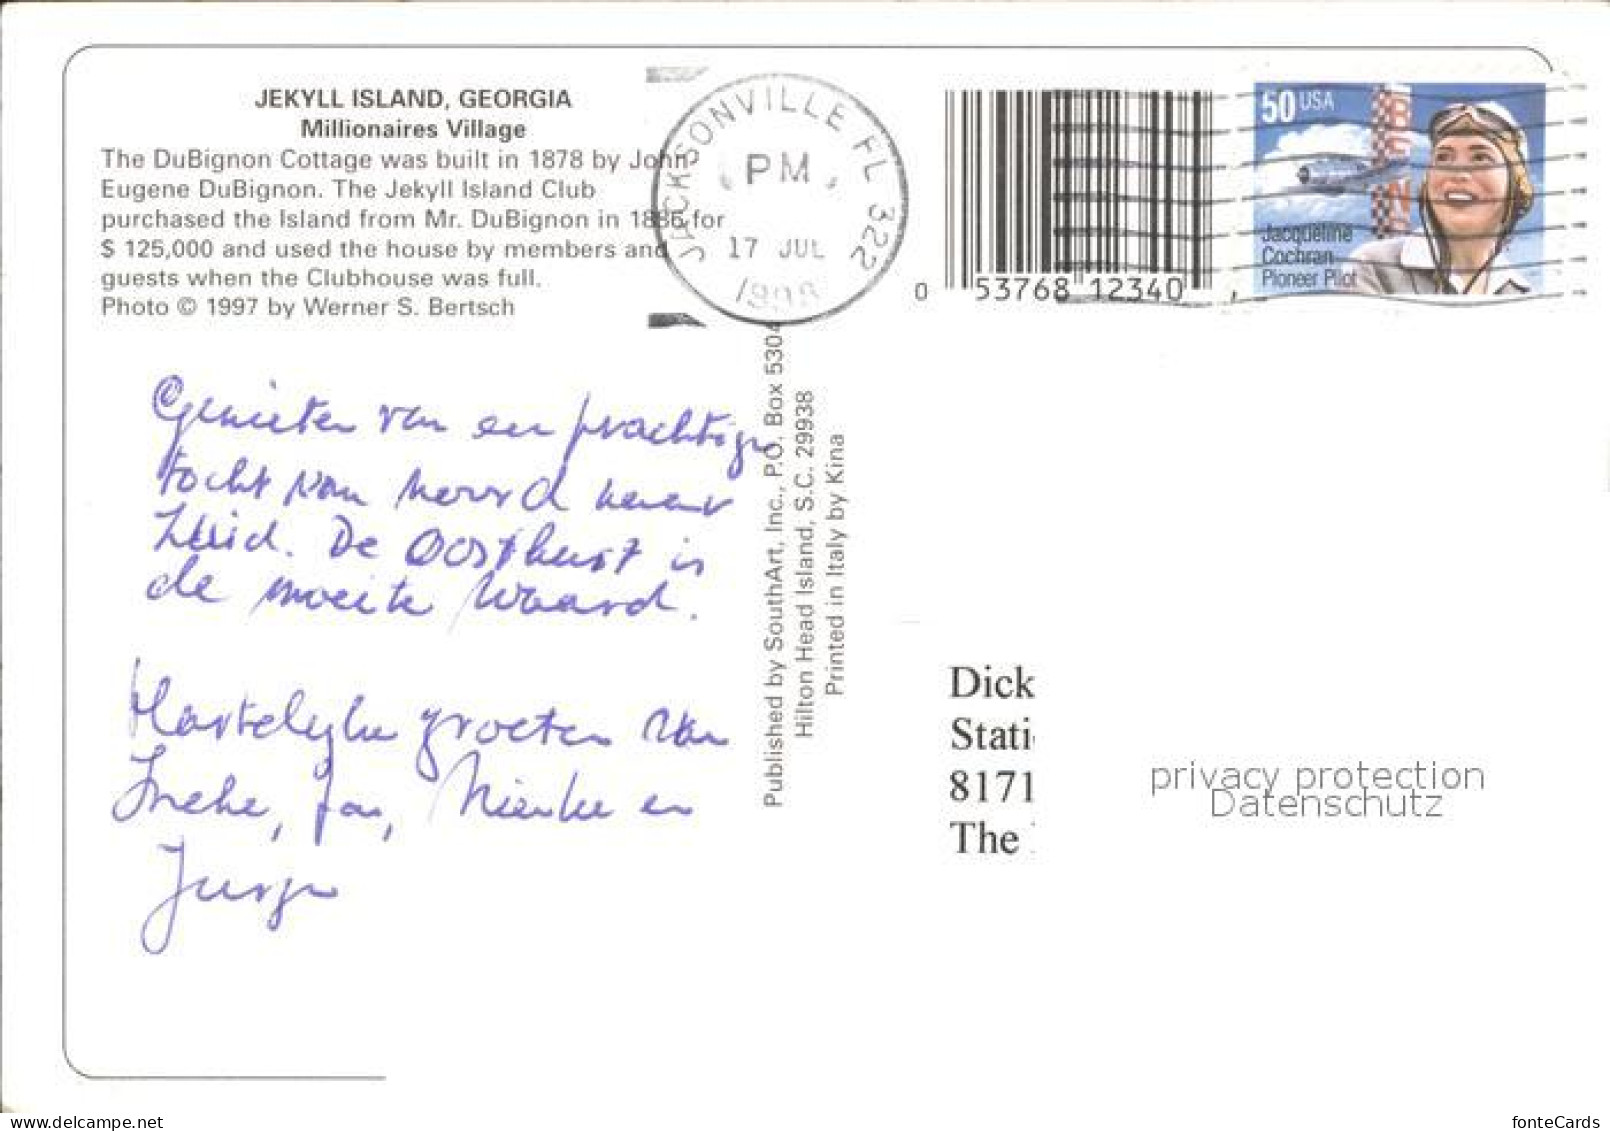 JEKYLL ISLAND, GEORGIA
Millionaires Village
The DuBignon Cottage was built in 1878 by John
Eugene DuBignon. The Jekyll Island Club
purchased the Island from Mr. DuBignon in 1886 for
$ 125,000 and used the house by members and
guests when the Clubhouse was full.
Photo © 1997 by Werner S. Bertsch
JACKSONVILLE FL 322
PM
17 JUL
1998
0 53768 12340
50 USA
Jacqueline
Cochran
Pioneer Pilot
Genieten van een prachtige
tocht van noord naar
Zuid. De Oostkust is
de moeite waard.
Hartelijke groeten van
Ineke, Jan, Nienke en
Published by SouthArt, Inc., P.O. Box 5304
Hilton Head Island, S.C. 29938
Printed in Italy by Kina
Dick
Stati
8171
The
privacy protection
Datenschutz
www.delcampe.net
fonteCards